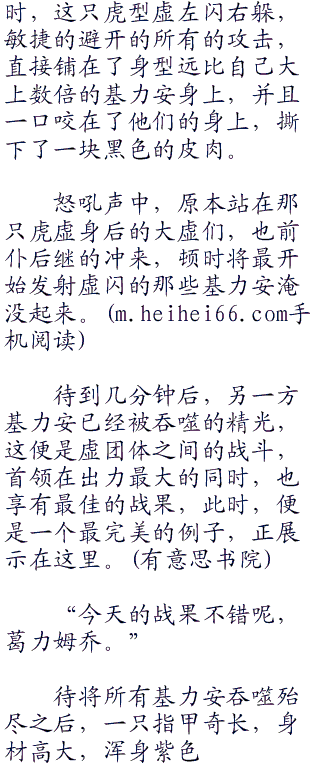 时，这只虎型虚左闪右躲，
敏捷的避开的所有的攻击，
直接铺在了身型远比自己大
上数倍的基力安身上，并且
一口咬在了他们的身上，撕
下了一块黑色的皮肉。
怒吼声中，原本站在那
只虎虚身后的大虚们，也前
仆后继的冲来，顿时将最开
始发射虚闪的那些基力安淹
没起来。(m.heihei66.com手
机阅读)
待到几分钟后，另一方
基力安已经被吞噬的精光，
这便是虚团体之间的战斗，
首领在出力最大的同时，也
享有最佳的战果，此时，便
是一个最完美的例子，正展
示在这里。(有意思书院)
“今天的战果不错呢，
葛力姆乔。”
待将所有基力安吞噬殆
尽之后，一只指甲奇长，身
材高大，浑身紫色